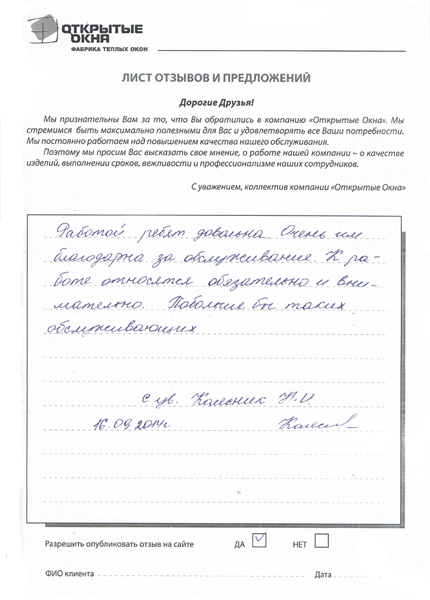 ОТКРЫТЫЕ
ОКНА
ФАБРИКА ТЕПЛЫХ ОКОН
ЛИСТ ОТЗЫВОВ И ПРЕДЛОЖЕНИЙ
Дорогие Друзья!
Мы признательны Вам за то, что Вы обратились в компанию «Открытые Окна». Мы
стремимся быть максимально полезными для Вас и удовлетворять все Ваши потребности.
Мы постоянно работаем над повышением качества нашего обслуживания.
Поэтому мы просим Вас высказать свое мнение, о работе нашей компании – о качестве
изделий, выполнении сроков, вежливости и профессионализме наших сотрудников.
С уважением, коллектив компании «Открытые Окна»
Работой ребят довольна. Очень им
благодарна за обслуживание. К ра-
боте относятся обязательно и вни-
мательно. Побольше бы таких
обслуживающих
С ув. Колесник Н.И.
16.09.2014г. Колес
Разрешить опубликовать отзыв на сайте ДА НЕТ
ФИО клиента Дата